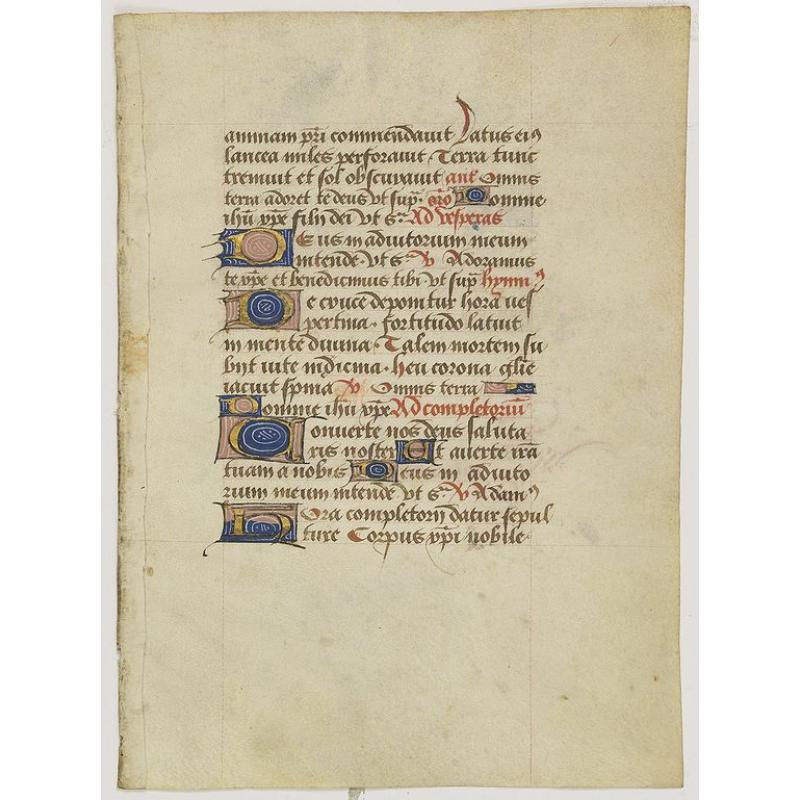 animam pr̄i commendauit Latus eiꝰ
lancea miles perforauit · Terra tunc
tremuit et sol obscurauit ant̄ Omnis
terra adoret te deus vt sup̄ · or̄o Domine
ihū xp̄e filii dei vt sᵃ Ad vesperas
Deus in adiutorium meum
intende · vt sᵃ ꝟ Adoramus
te xp̄e et benedicimus tibi vt sup̄ hymnꝰ
De cruce deponitur hora ves
pertina · fortitudo latuit
in mente diuina · Talem mortem su
biit uite medicina · heu corona gl̄ie
iacuit spina ꝟ Omnis terra
Domine ihū xp̄e Ad completoriū
Conuerte nos deus saluta
ris noster Et auerte irā
tuam a nobis Deus in adiuto
rium meum intende vt sᵃ ꝟ Adamꝰ
Hora completorii datur sepul
ture Corpus xp̄i nobile ·